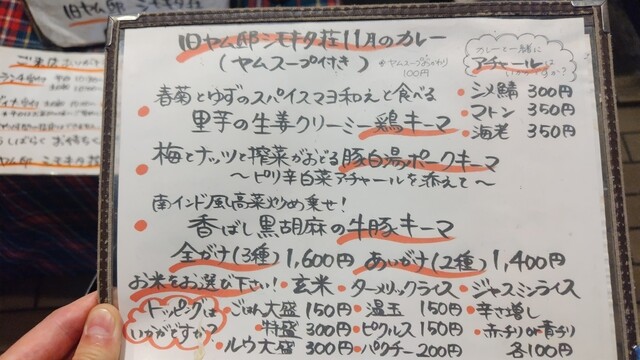 旧ヤム邸 シモキタ荘
旧ヤム邸シモキタ荘11月のカレー
(ヤムスープ付き)
※ヤムスープおかわり
100円
カレーと一緒に
アチャールは
いかがですか?
シメ鯖 300円
マトン 350円
海老 350円
春菊とゆずのスパイスマヨ和えと食べる
里芋の生姜クリーミー鶏キーマ
梅とナッツと搾菜がおどる豚白湯ポークキーマ
〜ピリ辛白菜アチャールを添えて〜
南インド風高菜炒め乗せ!
香ばし黒胡麻の牛豚キーマ
全がけ(3種)1,600円 あいがけ(2種)1,400円
お米をお選び下さい! ・玄米 ・ターメリックライス ・ジャスミンライス
トッピングは
いかがですか?
・ごはん大盛 150円
・特盛 300円
・ルウ大盛 300円
・温玉 150円
・ピクルス 150円
・パクチー 200円
・辛さ増し
・赤チリor青チリ
各100円